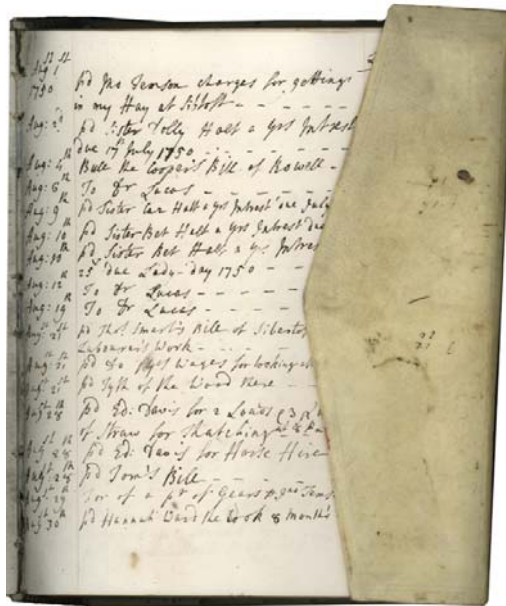 Aug: 1st
1750 pd Mr Jenson charges for gettings
in my Hay at
Aug: 2d pd Sister Tolly Half a yrs Intrest
due 17th July 1750
Aug: 4th Bull the Coopers Bill of Rowell
Aug: 6th To Dr Lucas
Aug: 9th pd Sister Half a yrs Intrest due July
Aug: 10th pd Sister Bet Half a yrs Intrest due
Aug: 10th pd Sister Bet Half a yrs Intrest
25d due Lady-day 1750
Aug: 12th To Dr Lucas
Aug: 19th To Dr Lucas
Aug: 21st pd Thos: Smart's Bill of
Labourers Work
Aug: 21st pd wages for looking
Augst 21st pd Tyth of the Wood there
Augst 28th pd Ed: Davis for 2 Loads
of Straw for Thatching
Augst 28th pd Ed: Davis for Horse Hire
Augst 28th pd Tom's Bill
Augst 29th For of a pr of Gears
Augst 30th pd Hannah Ward the Cook 8 Month's